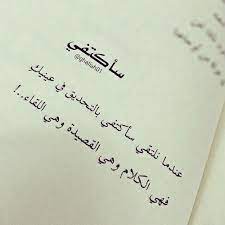 سأكتفي
@ghallah01
عندما نلتقي سأكتفي بالتحديق في عينيك
فهي الكلام وهي القصيدة وهي اللقاء..!